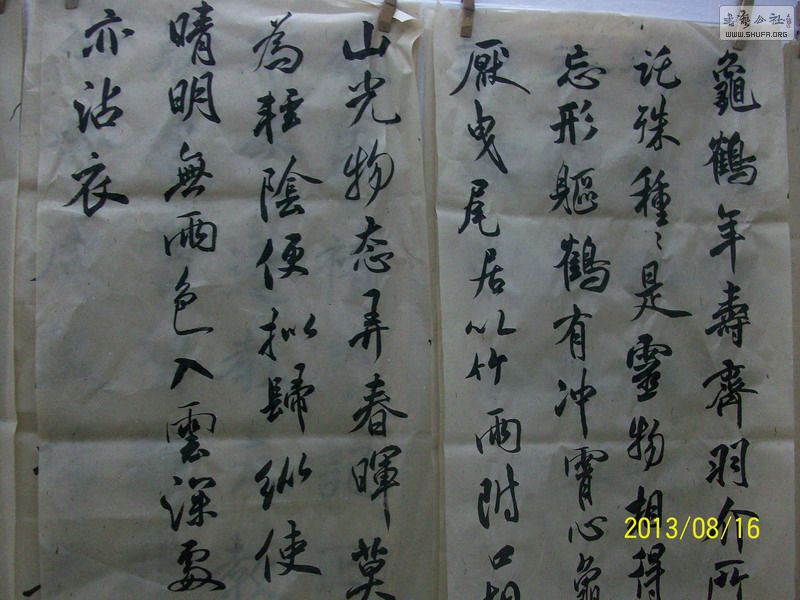 龜鶴年壽齊羽介所
託殊種〻是靈物相得
忘形軀鶴有沖霄心龜
厭曳尾居以竹兩附口相
山光物态弄春暉莫
為輕陰便擬歸縱使
晴明無雨色入雲深處
亦沾衣
2013/08/16
书艺公社
WWW.SHUFA.ORG